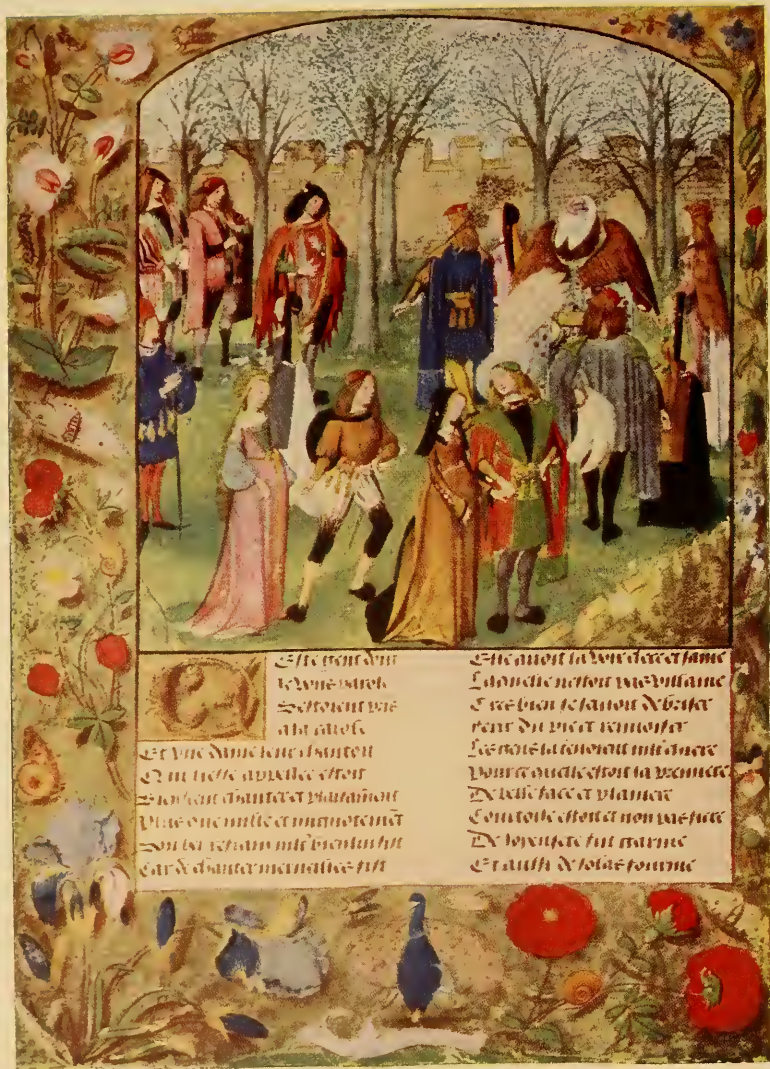 Ceste gent dont
Je vous parole
Sestoient pris
a la carole
Et vne dame leur chantoit
Qui liesse appellee estoit
Bien sceut chanter et plaisāmēt
Plus que nulle et mignotemēt
Son bel refrain mlt bien lui sist
Car de chanter merueilles fist
Elle auoit la voix clere et saine
Laquelle nestoit pas villaine
Tres bien se sauoit debriser
ferir du pie et renuoiser
Les gens la tenoient
Pource quelle estoit la premiere
De belle face et planiere
Courtoise estoit et non pas fiere
De fut
Et aussi de solas fourme